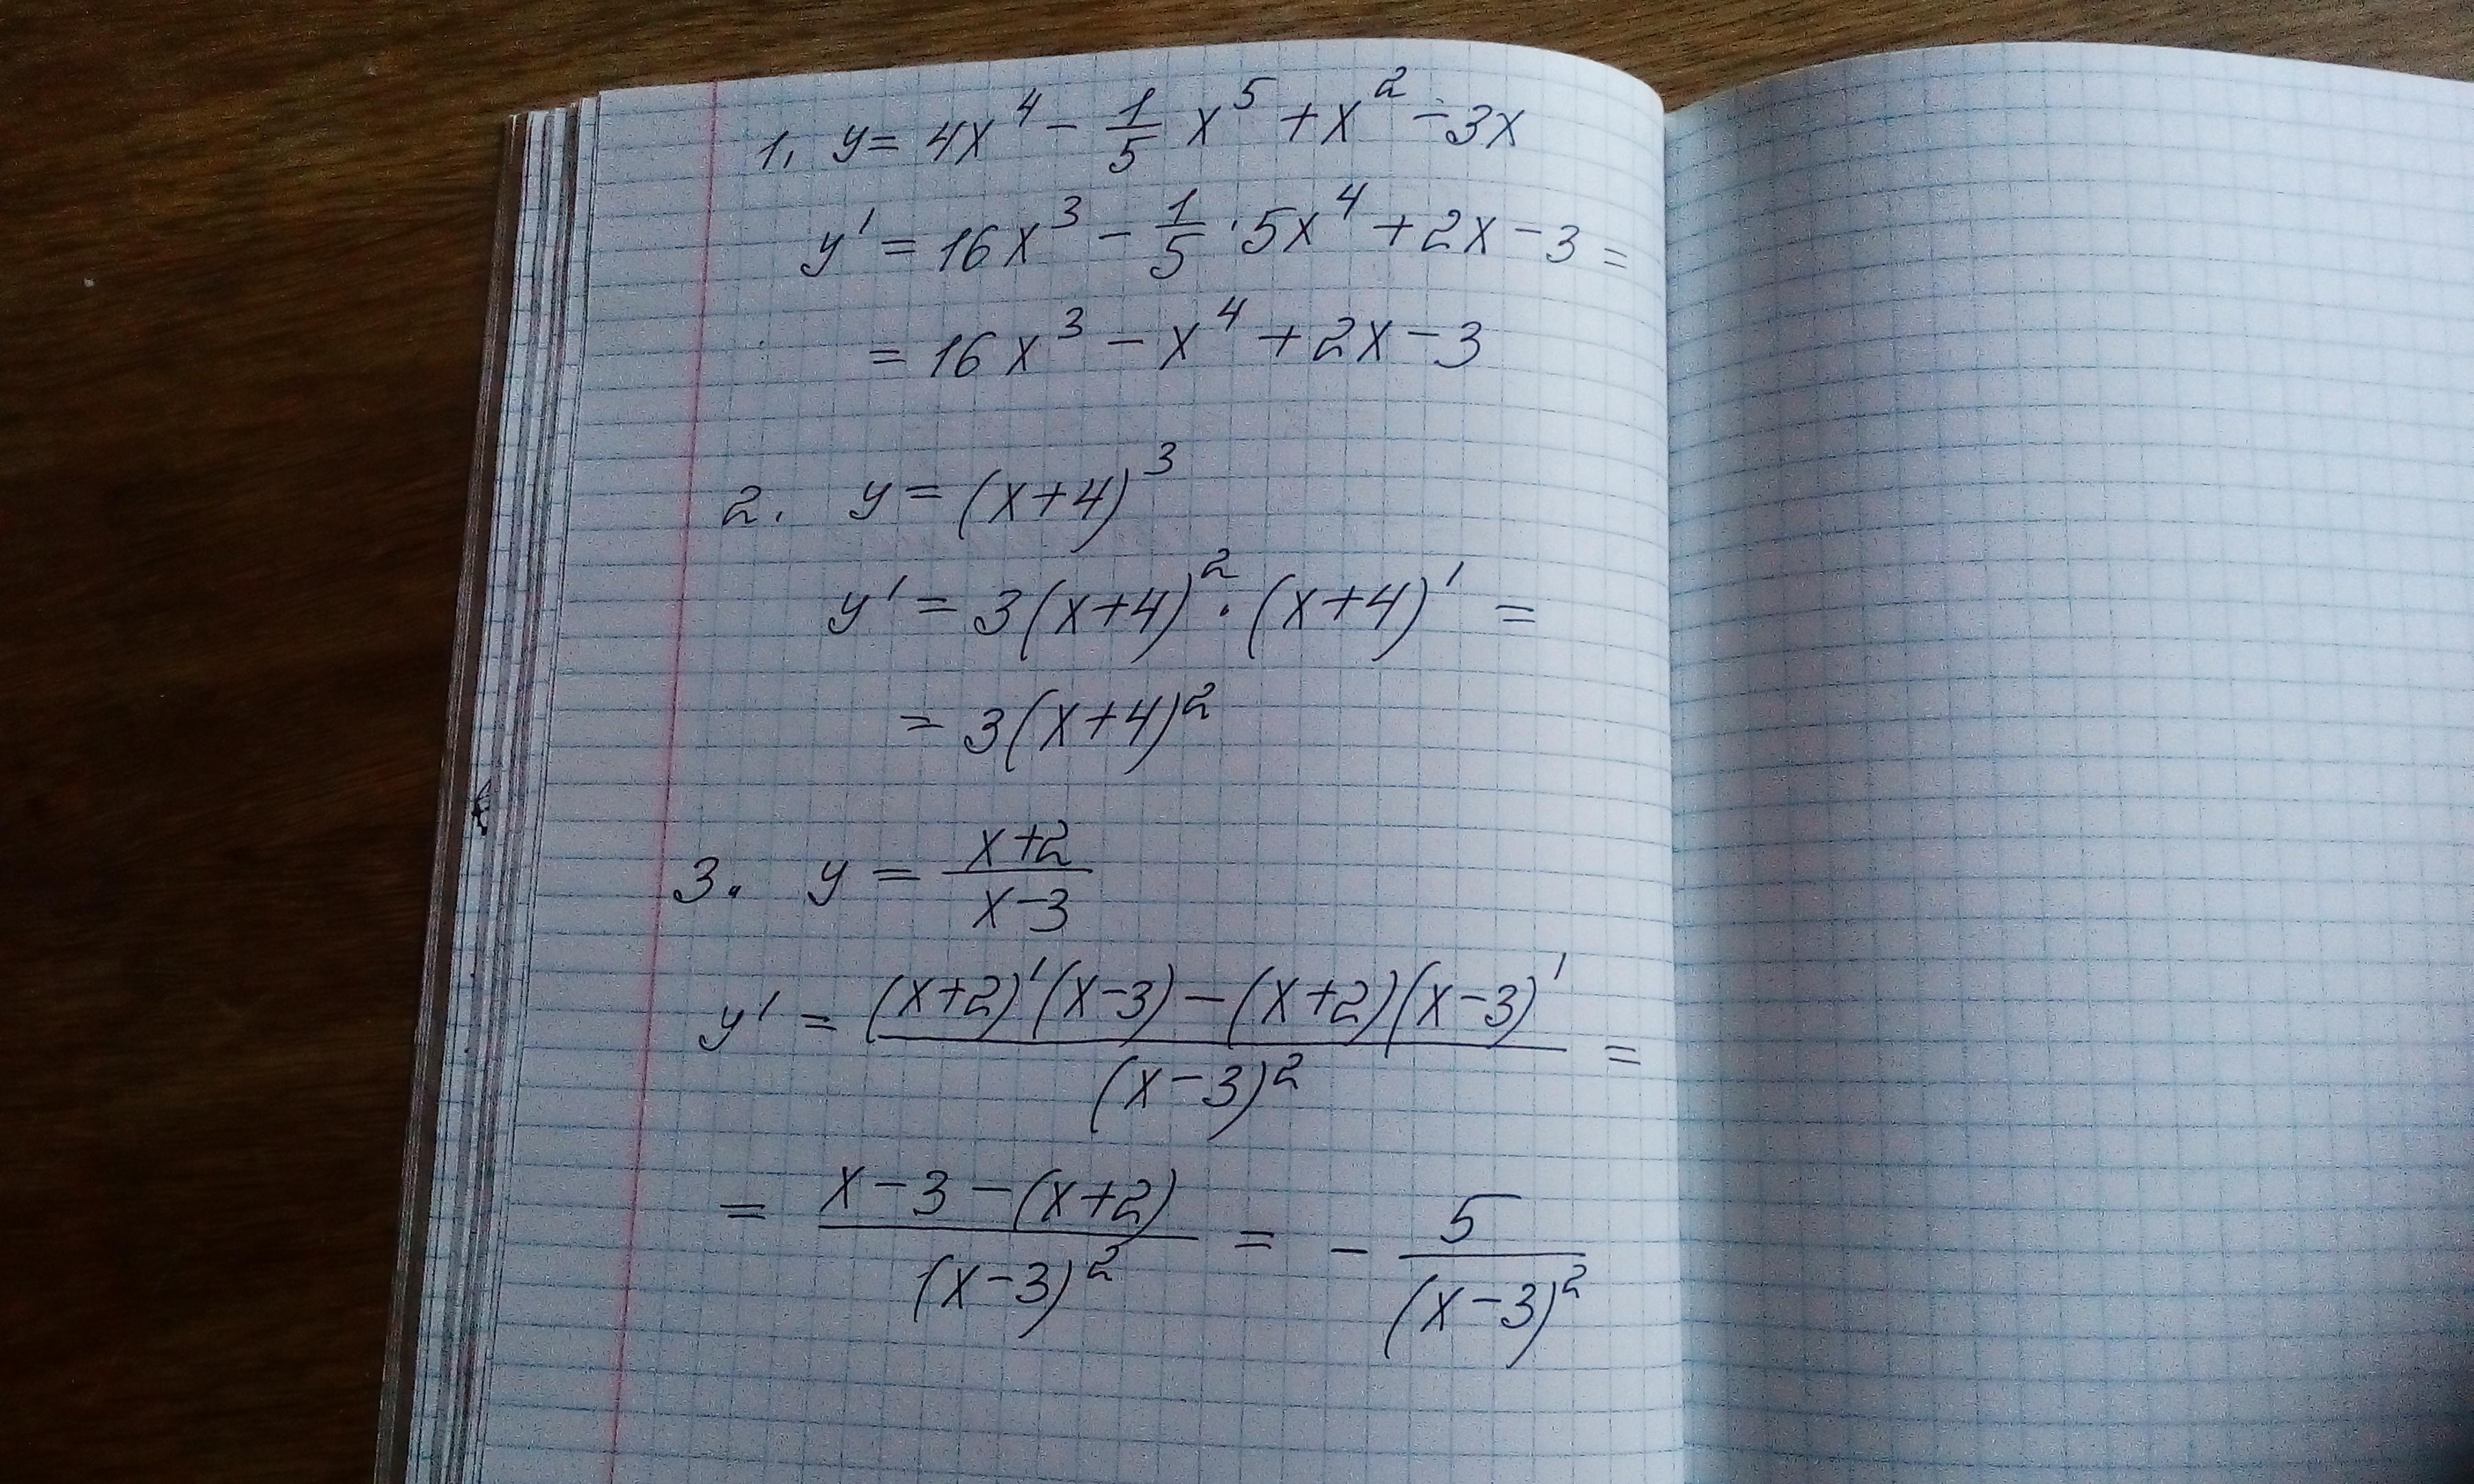 1. y = 4x⁴ - 1/5 x⁵ + x² - 3x
y' = 16x³ - 1/5 · 5x⁴ + 2x - 3 =
= 16x³ - x⁴ + 2x - 3
2. y = (x+4)³
y' = 3(x+4)² · (x+4)' =
= 3(x+4)²
3. y = (x+2)/(x-3)
y' = ((x+2)'(x-3) - (x+2)(x-3)')/(x-3)² =
= (x-3-(x+2))/(x-3)² = - 5/(x-3)²